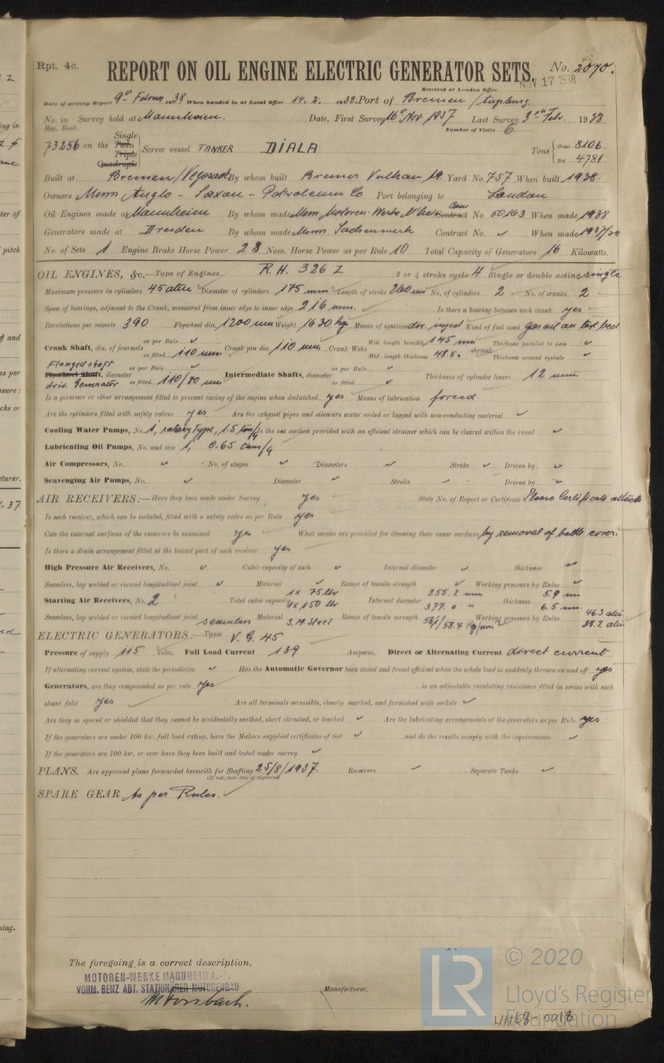 Rpt. 4c.
REPORT ON OIL ENGINE ELECTRIC GENERATOR SETS.
No. 2070.
Received at London Office
NOV 17 1938
Date of writing Report 9th 1938 When handed in at Local Office 14. 2. 1938. Port of Bremen /
No. in Survey held at Mannheim. Date, First Survey 16th Nov. 1937 Last Survey 3rd Febr. 1938
Reg. Book. Number of Visits 6
73256 on the Single Twin Triple Quadruple Screw vessel TANKER DIALA Tons Gross 8106 Net 4781
Built at Bremen/Vegesack By whom built Bremer Vulkan Yard No. 757 When built 1938.
Owners Messrs Anglo-Saxon-Petroleum Co Port belonging to London
Oil Engines made at Mannheim By whom made Messrs Motoren-Werke Contract No. When made 1938
Generators made at Dresden By whom made Messrs Sachsenwerk Contract No. When made 1937/38
No. of Sets 1 Engine Brake Horse Power 28 Nom. Horse Power as per Rule 10 Total Capacity of Generators 16 Kilowatts.
OIL ENGINES, &c.—Type of Engines R.H. 326 Z 2 or 4 stroke cycle 4 Single or double acting single
Maximum pressure in cylinders 45 atm Diameter of cylinders 175 mm Length of stroke 260 mm No. of cylinders 2 No. of cranks 2
Span of bearings, adjacent to the Crank, measured from inner edge to inner edge 216 mm. Is there a bearing between each crank yes
Revolutions per minute 390 Flywheel dia. 1200 mm Weight 1630 kgs Means of ignition Kind of fuel used
Crank Shaft, dia. of journals as per Rule as fitted 110 mm Crank pin dia. 110 mm Crank Webs Mid. length breadth 145 mm Thickness parallel to axis
Mid. length thickness 48.5 Thickness around eyehole
Flanged shaft
Flywheel Shaft, diameter as per Rule Intermediate Shafts, diameter as per Rule Thickness of cylinder liners 12 mm
driv. Generator as fitted 110/80 mm as fitted
Is a governor or other arrangement fitted to prevent racing of the engine when declutched yes Means of lubrication forced
Are the cylinders fitted with safety valves yes Are the exhaust pipes and silencers water cooled or lagged with non-conducting material
Cooling Water Pumps, No. 1, rotary type, 1.5 Is the sea suction provided with an efficient strainer which can be cleared within the vessel
Lubricating Oil Pumps, No. and size 1, 0.65
Air Compressors, No. No. of stages Diameters Stroke Driven by
Scavenging Air Pumps, No. Diameter Stroke Driven by
AIR RECEIVERS:—Have they been made under Survey yes State No. of Report or Certificate Please Certificate attached
Is each receiver, which can be isolated, fitted with a safety valve as per Rule yes
Can the internal surfaces of the receivers be examined yes What means are provided for cleaning their inner surfaces by removal of bottle cover.
Is there a drain arrangement fitted at the lowest part of each receiver yes
High Pressure Air Receivers, No. Cubic capacity of each Internal diameter thickness
Seamless, lap welded or riveted longitudinal joint Material Range of tensile strength Working pressure by Rules
Starting Air Receivers, No. 2 Total cubic capacity 1x 75 ltr 1x 150 ltr Internal diameter 255.2 mm 377.0 " thickness 5.9 mm 6.5 mm
Seamless, lap welded or riveted longitudinal joint seamless Material S.M. Steel Range of tensile strength Working pressure by Rules 46.3 atm 38.2 atm
ELECTRIC GENERATORS:—Type V. G. 45
Pressure of supply 115 Volts. Full Load Current 139 Amperes. Direct or Alternating Current direct current
If alternating current system, state the periodicity Has the Automatic Governor been tested and found efficient when the whole load is suddenly thrown on and off yes
Generators, are they compounded as per rule yes is an adjustable regulating resistance fitted in series with each
shunt field yes Are all terminals accessible, clearly marked, and furnished with sockets
Are they so spaced or shielded that they cannot be accidentally earthed, short circuited, or touched Are the lubricating arrangements of the generators as per Rule yes
If the generators are under 100 kw. full load rating, have the Makers supplied certificates of test and do the results comply with the requirements
If the generators are 100 kw. or over have they been built and tested under survey
PLANS. Are approved plans forwarded herewith for Shafting 25/8/1937. Receivers Separate Tanks
(If not, state date of approval)
SPARE GEAR As per Rules.
The foregoing is a correct description,
MOTOREN-WERKE MANNHEIM A.-
VORM. BENZ ABT. STATIONÄRER MOTORENBAU
Manufacturer.
LR © 2020
Lloyd's Register
Foundation
W1168-0018